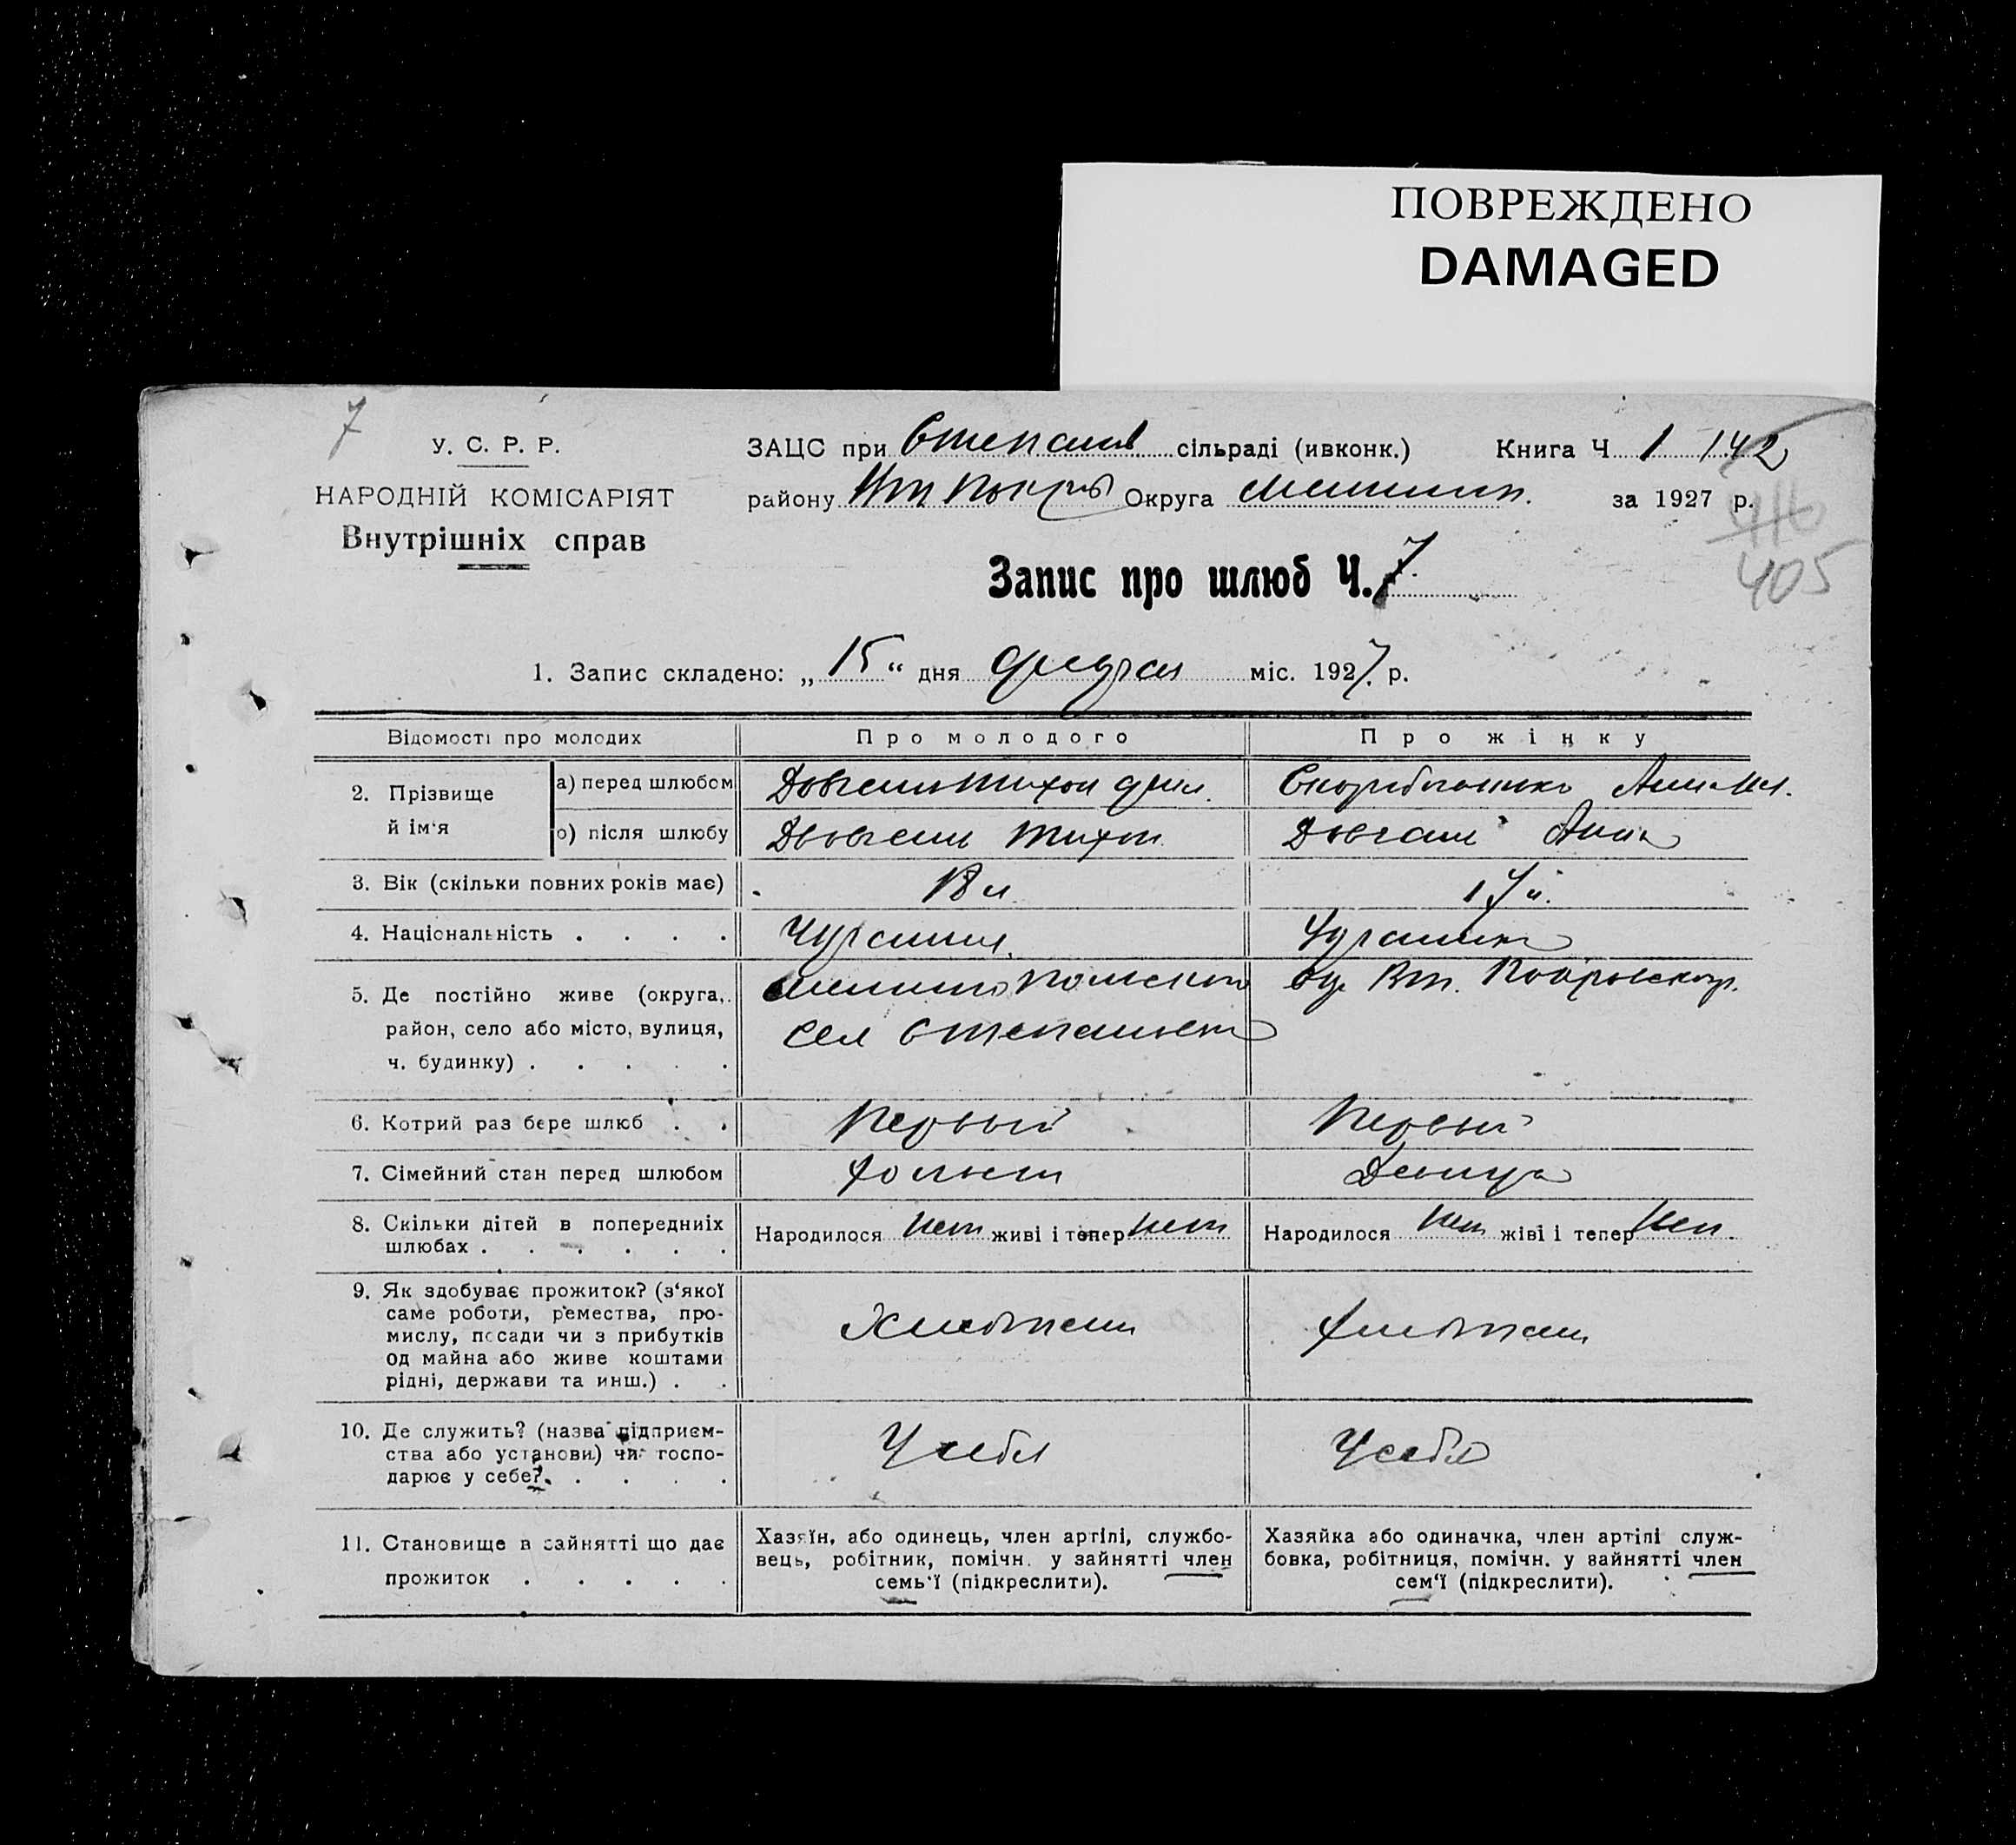 ПОВРЕЖДЕНО
DAMAGED
7
У. С. Р. Р.
НАРОДНІЙ КОМІСАРІЯТ
Внутрішніх справ
ЗАЦС при Степанів сільраді (ивконк.) Книга Ч 1 142
району Округа за 1927 р.
405
Запис про шлюб Ч. 7
1. Запис складено: „ 15 “ дня міс. 1927 р.
Відомості про молодих Про молодого Про жінку
2. Прізвище й ім‘я
а) перед шлюбом Довгаль Тихон Анна
о) після шлюбу Довгаль Тихон Довгаль Анна
3. Вік (скільки повних років має) 18 л.
4. Національність . . . .
5. Де постійно живе (округа, район, село або місто, вулиця, ч. будинку) . . . . .
сел
6. Котрий раз бере шлюб . . Первый Первый
7. Сімейний стан перед шлюбом Холост Девица
8. Скільки дітей в попередниіх шлюбах . . . . . .
Народилося нет живі і тепер нет Народилося нет жіві і тепер нет
9. Як здобуває прожиток? (з‘якої
саме роботи, ремества, про-
мислу, посади чи з прибутків
од майна або живе коштами
рідні, держави та инш.) . .
Хлебопаш Хлебопаш
10. Де служить? (назва підприєм-
ства або установи) чи госпо-
дарює у себе? . . . .
У себя У себя
11. Становище в зайнятті що дає
прожиток . . . . .
Хазяїн, або одинець, член артілі, службо-
вець, робітник, помічн. у зайнятті член
семь‘ї (підкреслити).
Хазяйка або одиначка, член артілі служ-
бовка, робітниця, помічн. у зайнятті член
сем‘ї (підкреслити).